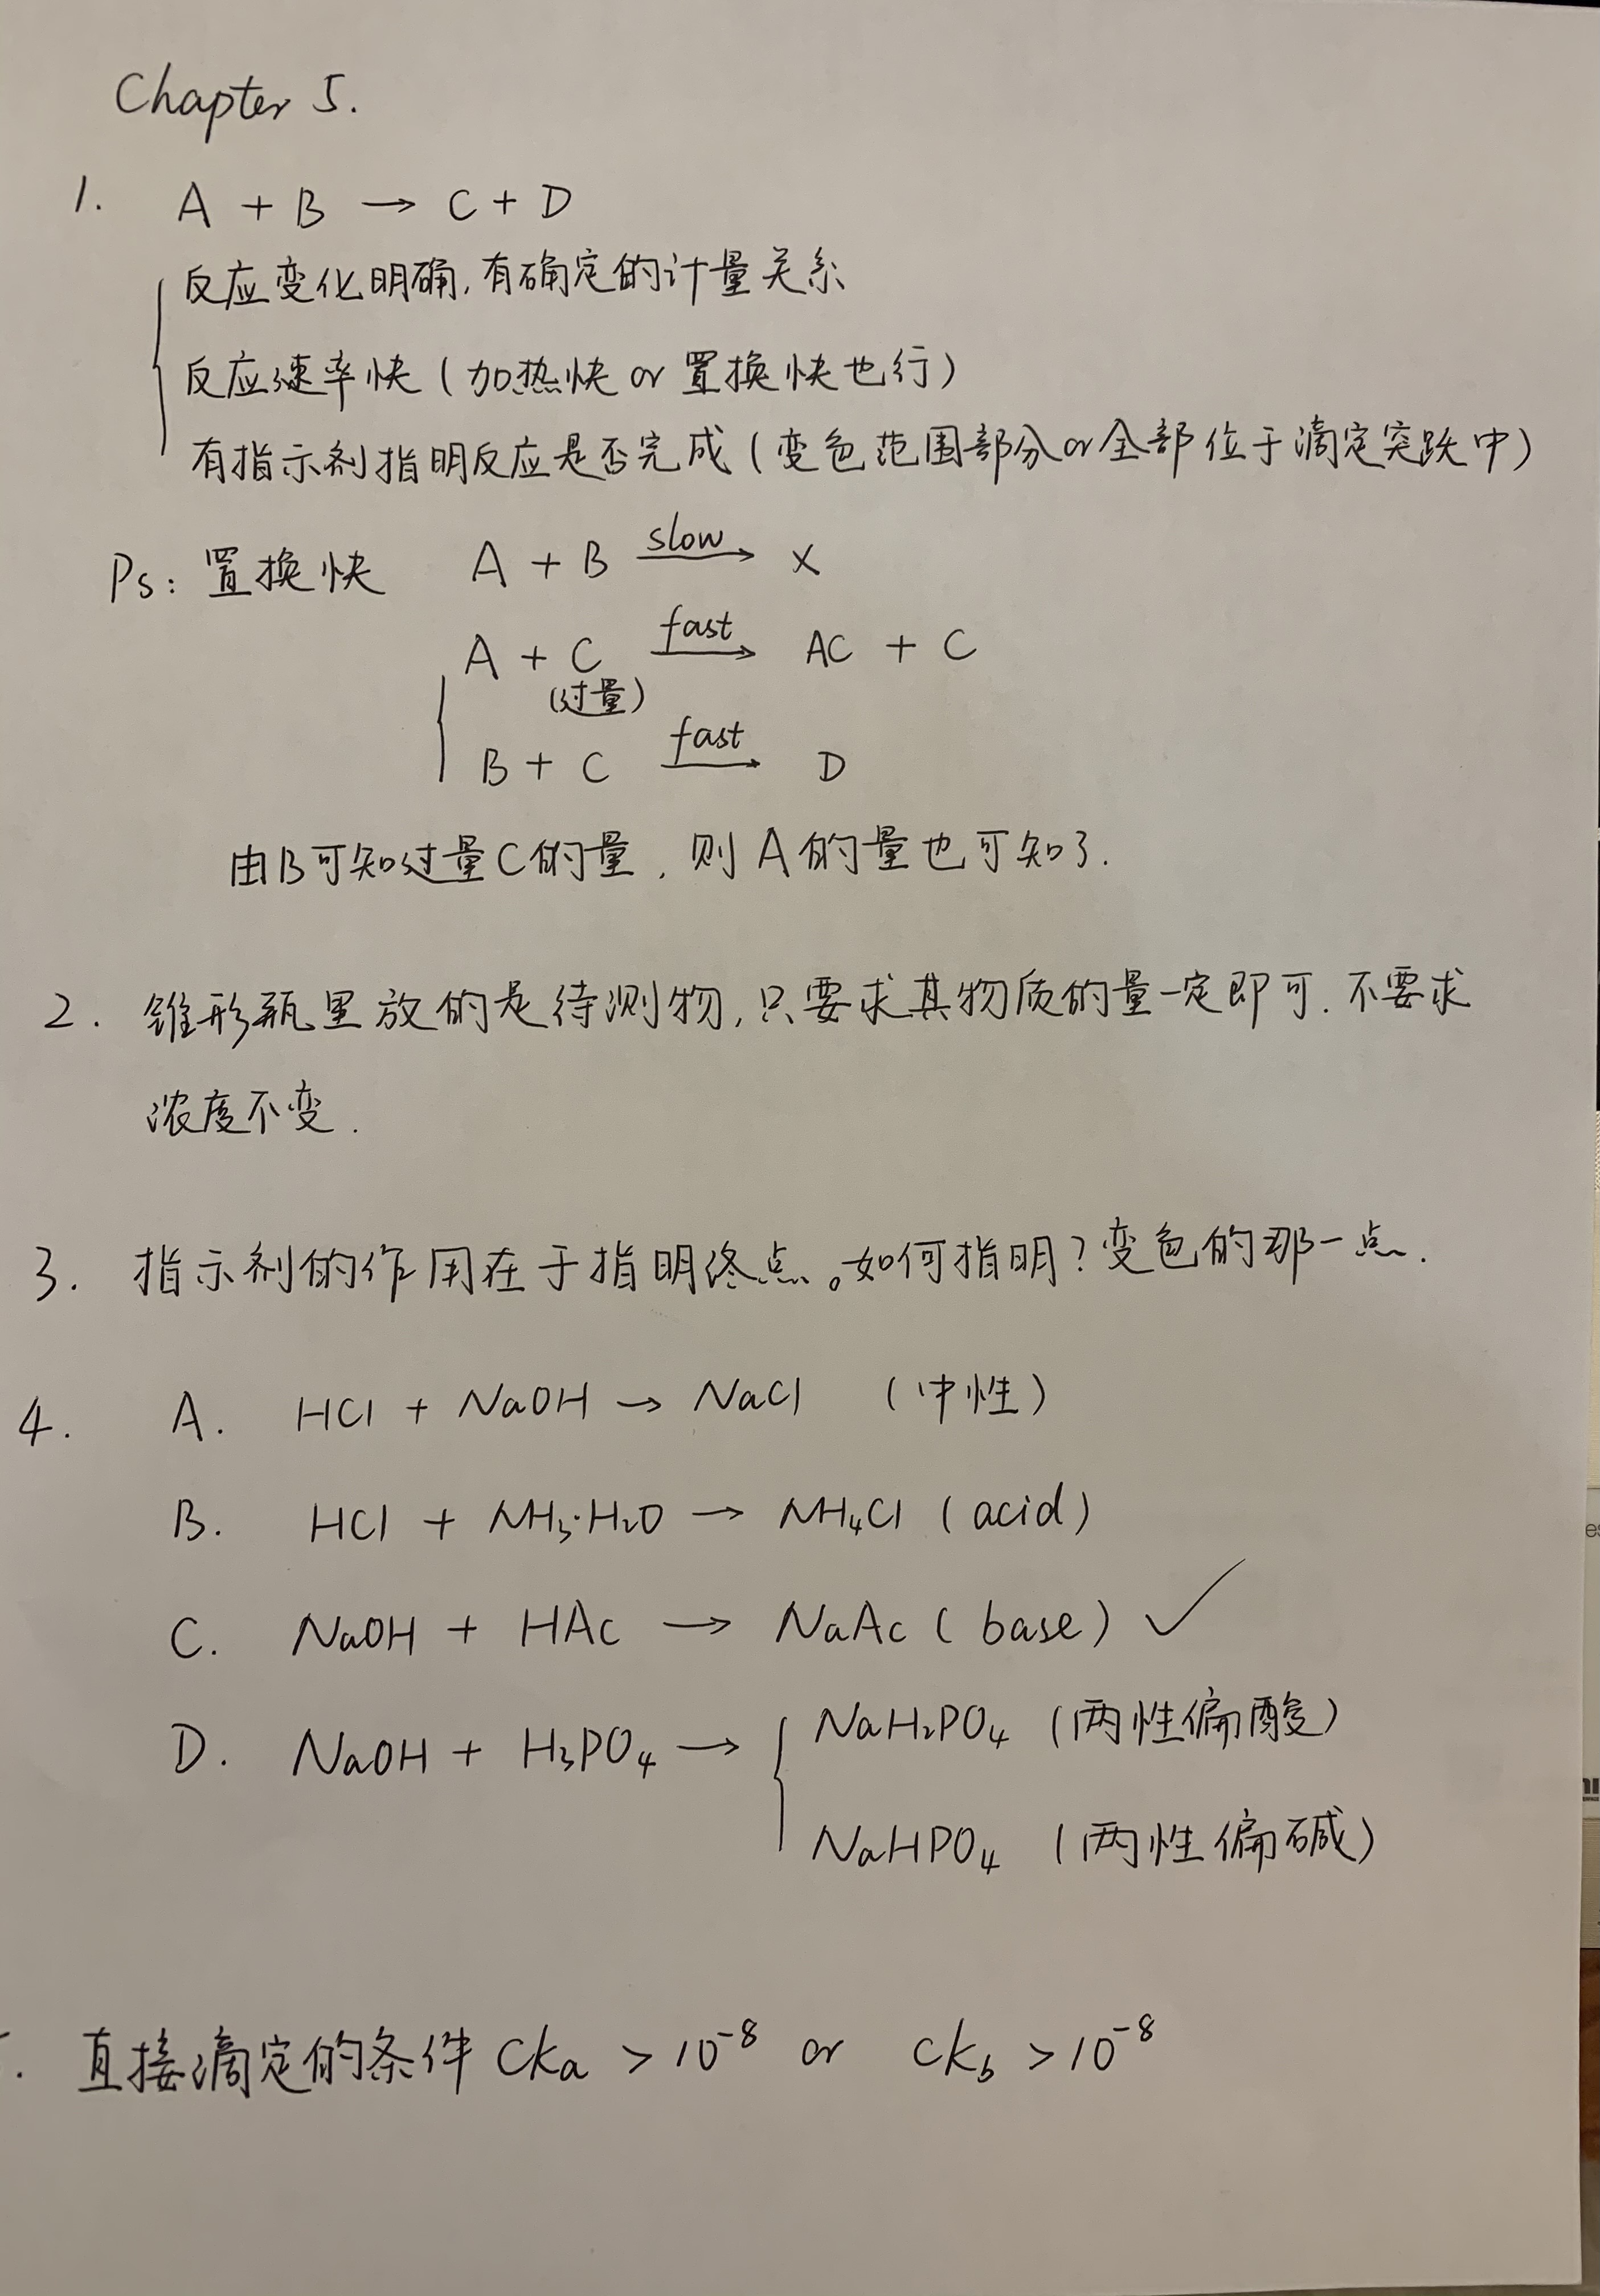 Chapter 5.
1. A + B → C + D
反应变化明确,有确定的计量关系
反应速率快(加热快 or 置换快也行)
有指示剂指明反应是否完成(变色范围部分or全部位于滴定突跃中)
Ps: 置换快 A + B slow→ X
A + C fast→ AC + C
(过量)
B + C fast→ D
由B可知过量C的量,则A的量也可知了.
2. 锥形瓶里放的是待测物,只要求其物质的量一定即可.不要求
浓度不变.
3. 指示剂的作用在于指明终点。如何指明?变色的那一点.
4. A. HCl + NaOH → NaCl (中性)
B. HCl + NH₃·H₂O → NH₄Cl (acid)
C. NaOH + HAc → NaAc (base) ✓
D. NaOH + H₃PO₄ → NaH₂PO₄ (两性偏酸)
NaHPO₄ (两性偏碱)
. 直接滴定的条件 Cka > 10⁻⁸ or ckb > 10⁻⁸